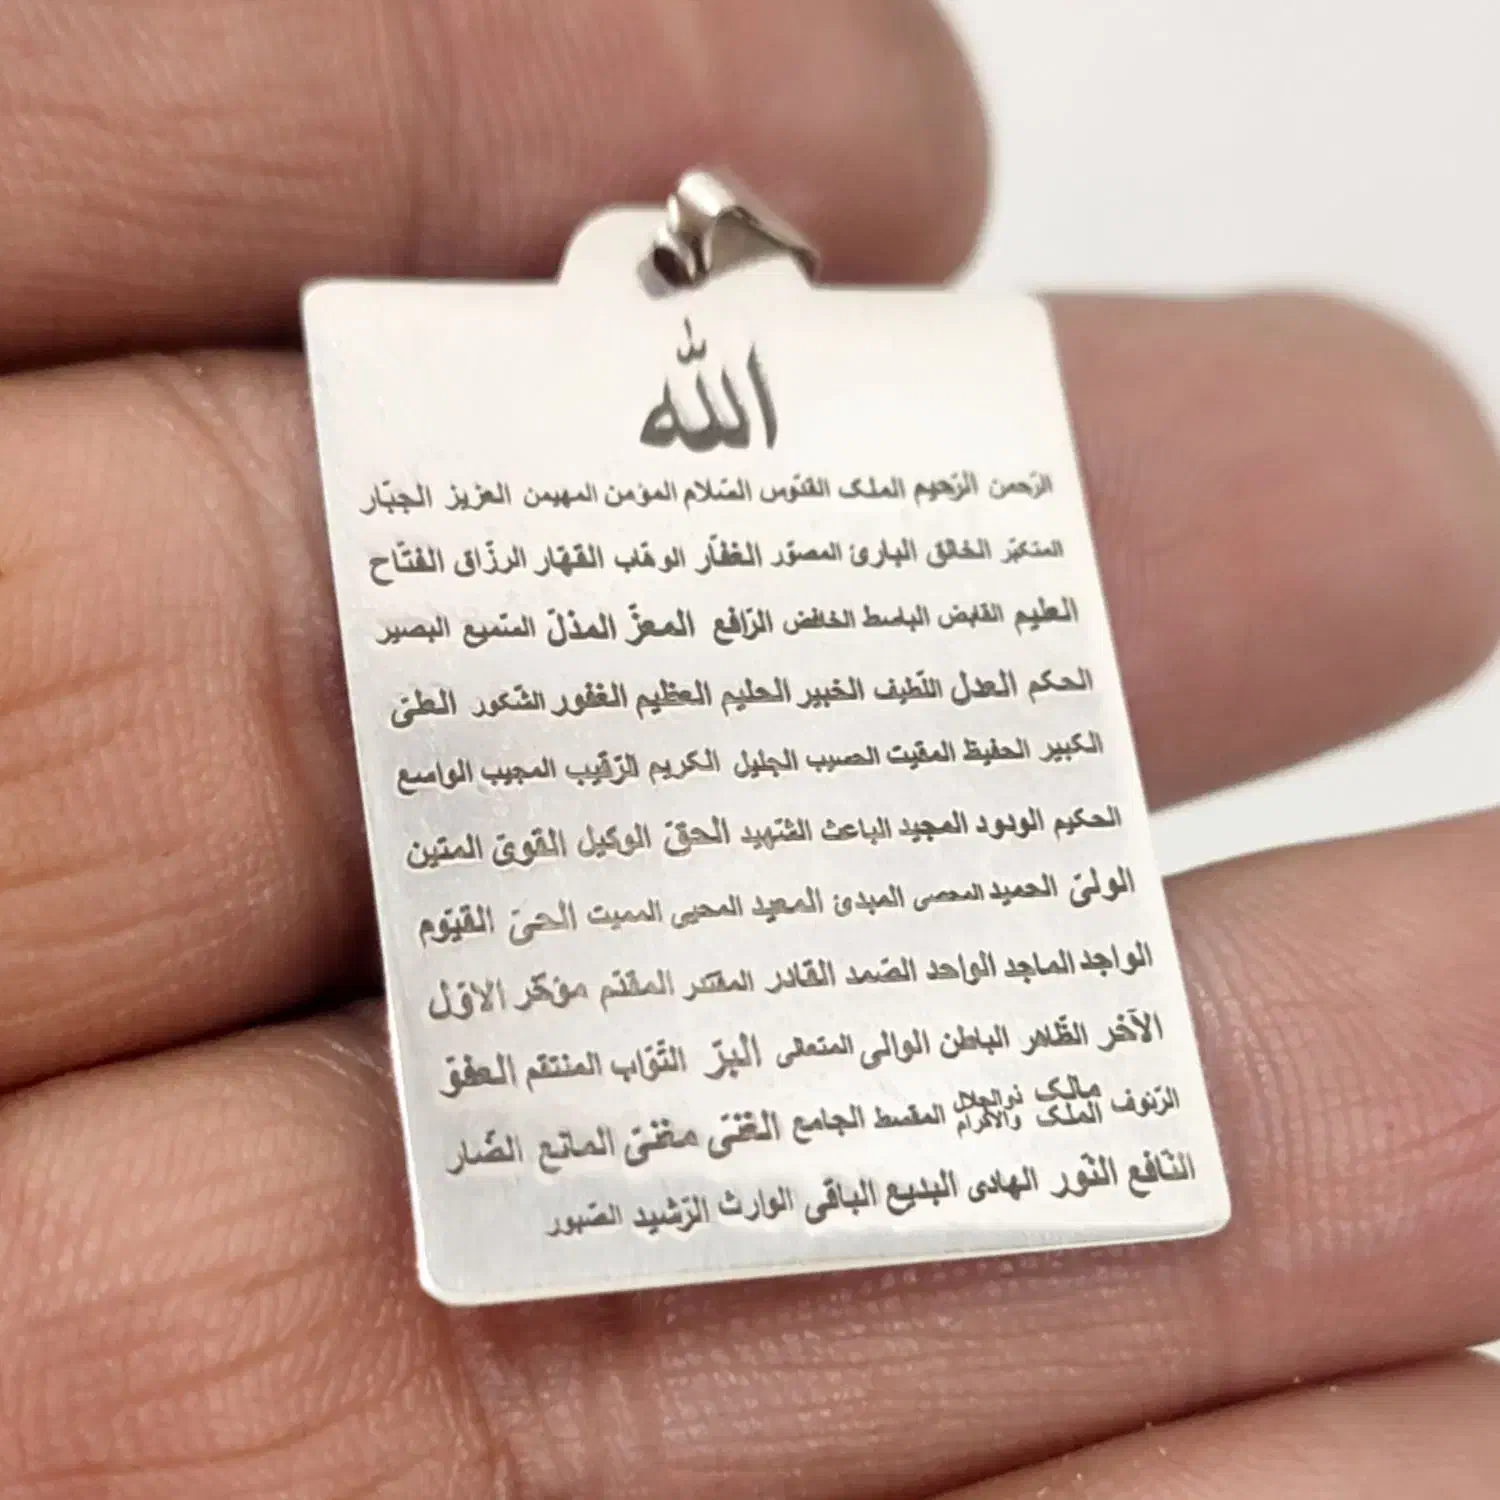 الله
الرّحمن الرّحيم الملک القدّوس السّلام المؤمن المهيمن العزيز الجبّار
المتكبّر الخالق البارئ المصوّر الغفّار الوهّاب القهّار الرزّاق الفتّاح
العليم القابض الباسط الخافض الرّافع المعزّ المذلّ السّميع البصير
الحكم العدل اللّطيف الخبير الحليم العظيم الغفور الشّكور العلیّ
الكبير الحفيظ المقيت الحسيب الجليل الكريم الرّقيب المجيب الواسع
الحكيم الودود المجيد الباعث الشّهيد الحقّ الوكيل القویّ المتين
الولیّ الحميد المحصی المبدئ المعيد المحيی المميت الحیّ القيّوم
الواجد الماجد الواحد الصّمد القادر المقتدر المقدّم مؤخّر الاوّل
الآخر الظّاهر الباطن الوالی المتعالی البرّ التّوّاب المنتقم العفوّ
الرّئوف مالک الملک ذوالجلال والاكرام المقسط الجامع الغنیّ مغنیّ المانع الضّار
النّافع النّور الهادی البديع الباقی الوارث الرّشيد الصّبور